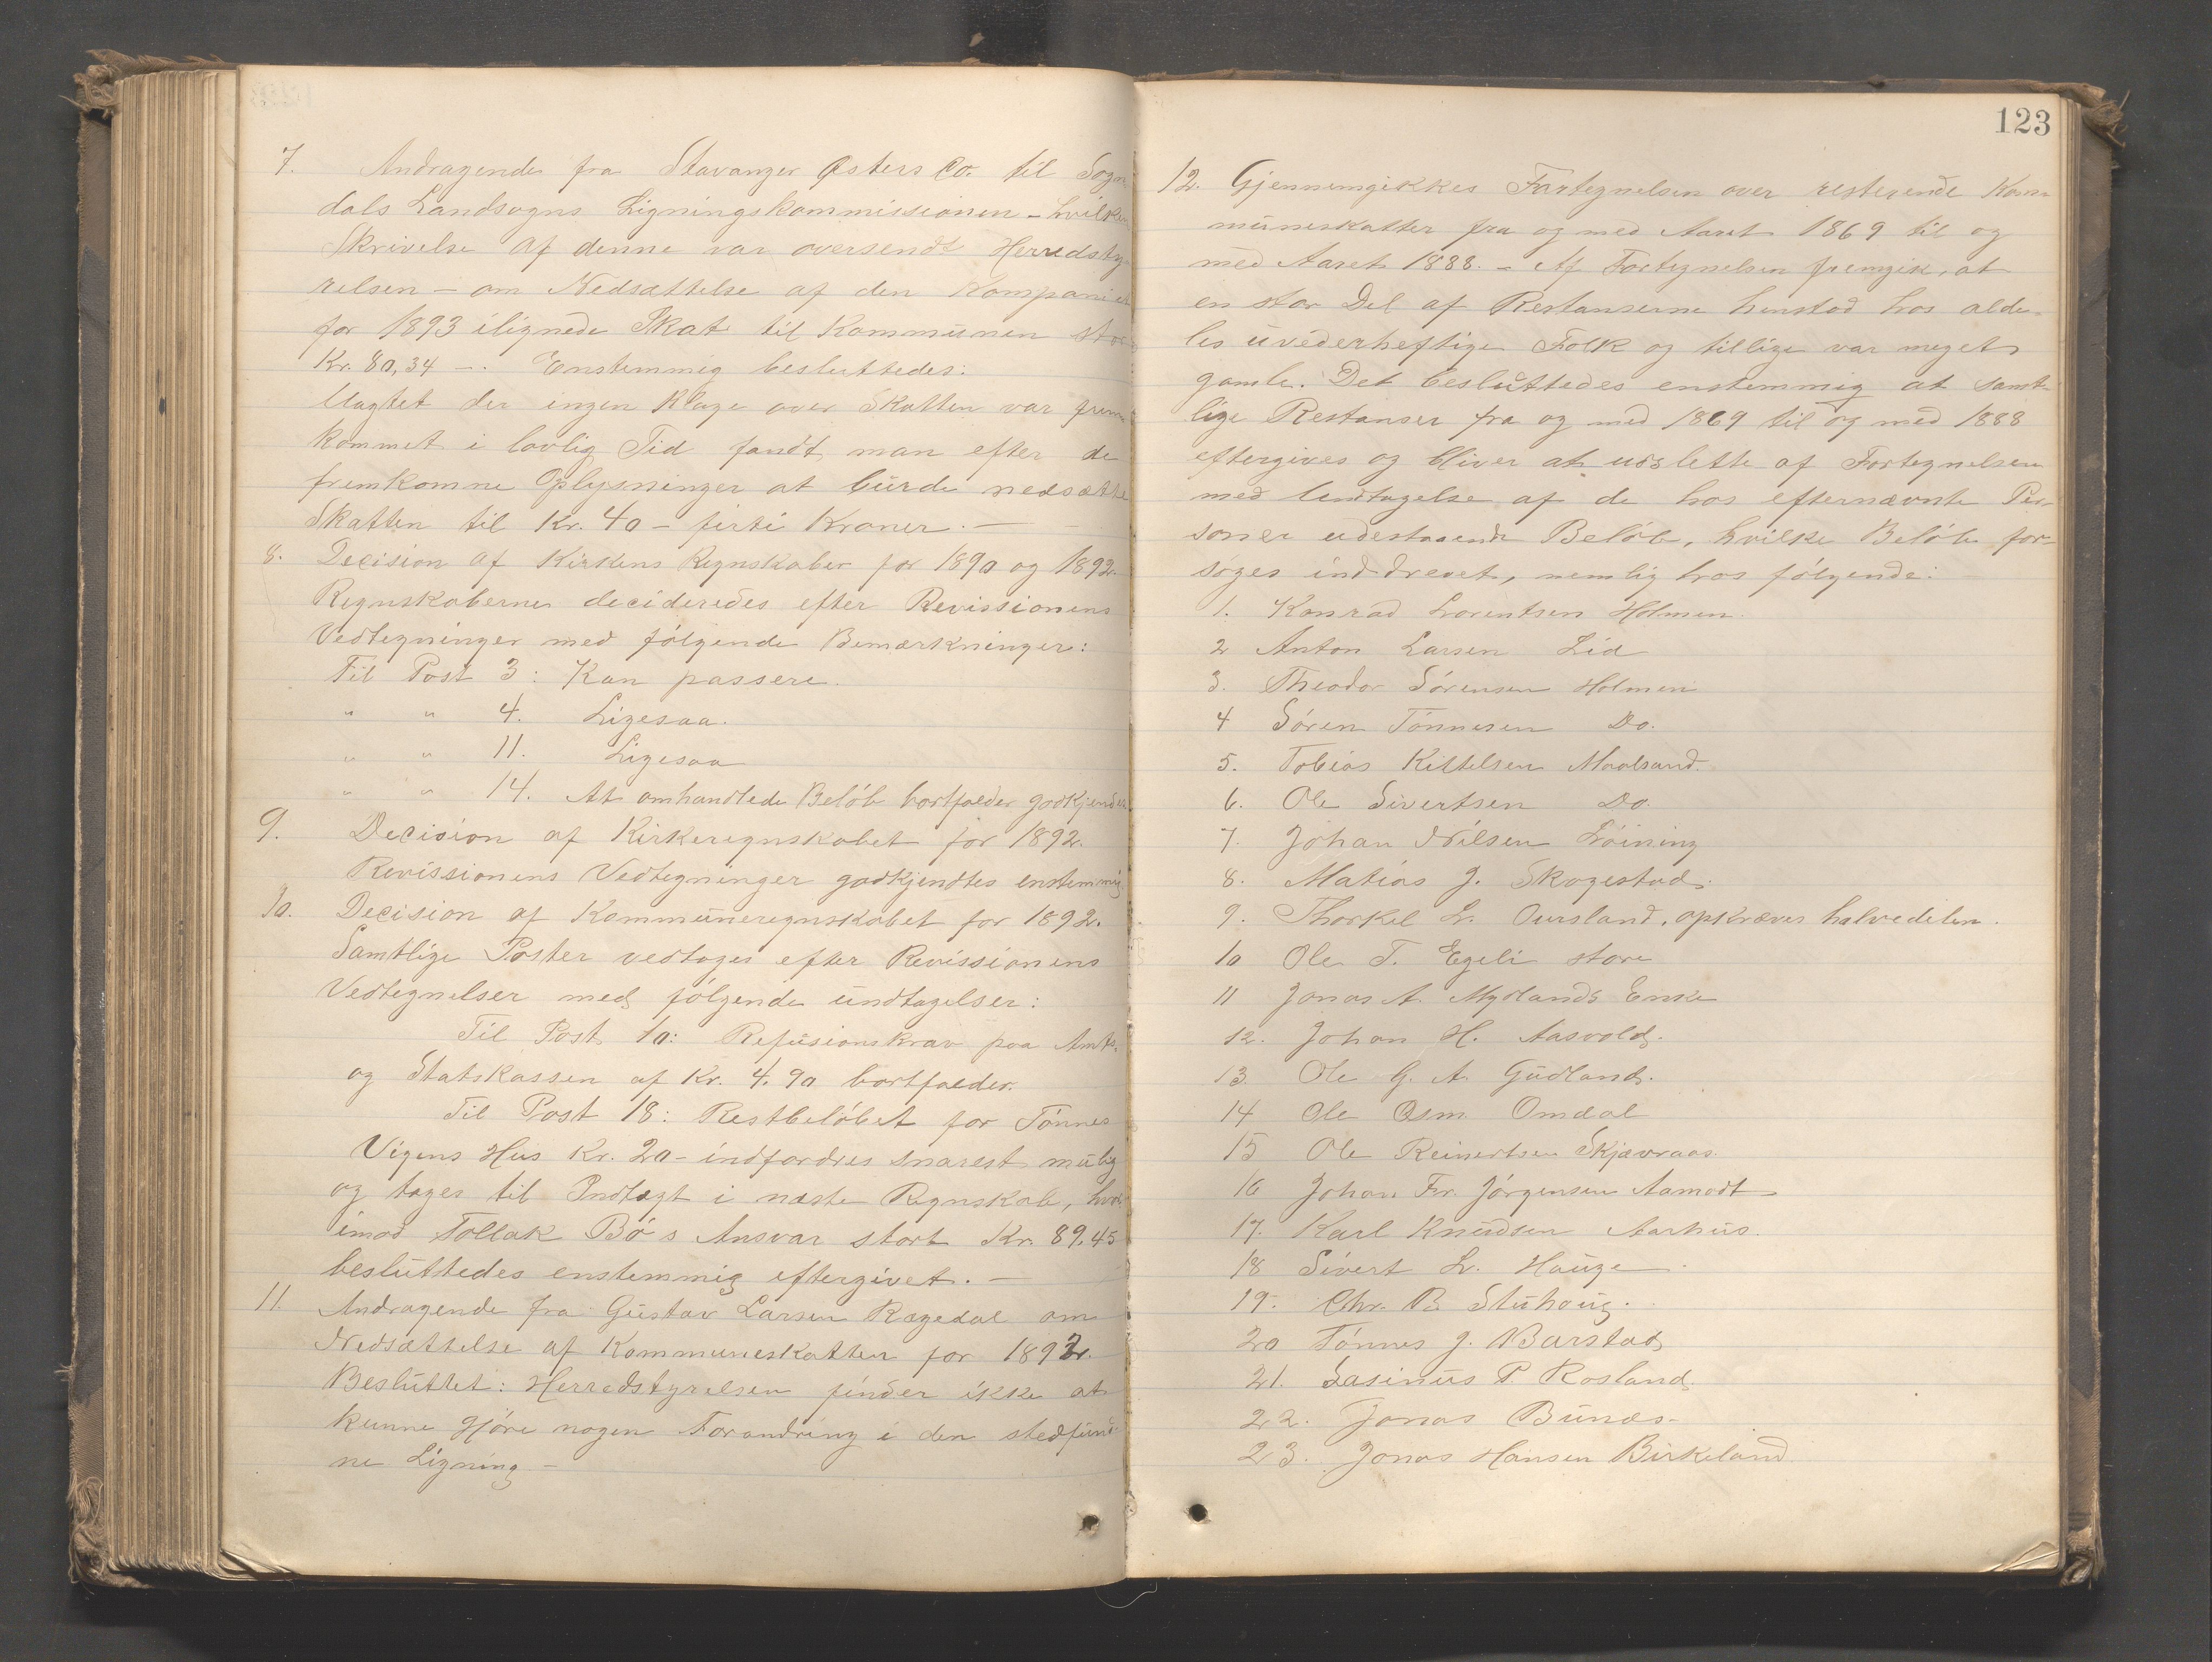 7. Andragende fra Stavanger Østers Co. til Sogn
dals Landsogns Ligningskommissionen - hvilken
Skrivelse af denne var oversendt Herredsty-
relsen - om Nedsættelse af den Kompaniet
for 1893 ilignede Skat til Kommunen stor
Kr. 80,34 -. Enstemmig besluttedes:
Uagtet der ingen Klage over Skatten var frem
kommet i lovlig Tid fandt man efter de
fremkomne Oplysninger at burde nedsætte
Skatten til Kr. 40 - firti Kroner. -
8. Decision af Kirkens Regnskaber for 1890 og 1892.
Regnskaberne decideredes efter Revissionens
Vedtegninger med følgende Bemærkninger:
Til Post 3: Kan passere.
" " 4. Ligesaa.
" " 11. Ligesaa
" " 14. At omhandlede Beløb bortfalder godkjendes
9. Decision af Kirkeregnskabet for 1892.
Revissionens Vedtegninger godkjendtes enstemmig
10. Decision af Kommuneregnskabet for 1892.
Samtlige Poster vedtoges efter Revissionens
Vedtegnelser med følgende undtagelser:
Til Post 10: Refusionskrav paa Amts-
og Statskassen af Kr. 4.90 bortfalder.
Til Post 18: Restbeløbet for Tønnes
Vigens Hus Kr. 20 - indfordres snarest mulig
og tages til Indtægt i næste Regnskab, hvor
imod Tollak Bø's Ansvar stort Kr. 89.45
besluttedes enstemmig eftergivet. -
11. Andragende fra Gustav Larsen Rægedal om
Nedsættelse af Kommuneskatten for 1892.
Besluttet: Herredstyrelsen finder ikke at
kunne gjøre nogen Forandring i den stedfund-
ne Ligning -
123
12. Gjennemgikkes Fortegnelsen over resterende Kom-
muneskatter fra og med Aaret 1869 til og
med Aaret 1888. - Af Fortegnelsen fremgik, at
en stor Del af Restanserne henstod hos alde-
les uvederheftige Folk og tillige var meget
gamle. Det besluttedes enstemmig at samt-
lige Restanser fra og med 1869 til og med 1888
eftergives og bliver at udslette af Fortegnelsen
med Undtagelse af de hos efternævnte Per-
soner udestaaende Beløb, hvilke Beløb for-
søges inddrevet, nemlig hos følgende:
1. Konrad Lorentsen Holmen.
2 Anton Larsen Lid
3. Theodor Sørensen Holmen
4 Søren Tønnesen Do.
5. Tobias Kittelsen Maalsand.
6. Ole Sivertsen Do.
7. Johan Nilsen Løining
8. Matias J. Skogestad.
9. Thorkel L. Oursland, opkræves halvedelen.
10 Ole T. Egeli store
11 Jonas A. Mydlands Enke
12. Johan H. Aasvold.
13. Ole G. A. Gudland.
14 Ole Osm. Omdal
15 Ole Reinertsen Skjævraas.
16 Johan Fr. Jørgensen Aamodt
17. Karl Knudsen Aarhus.
18 Sivert L. Hauge.
19. Chr. B. Stuhaug.
20 Tønnes J. Barstad
21. Rasinus P. Rosland.
22. Jonas Bunæs.
23. Jonas Hansen Birkeland